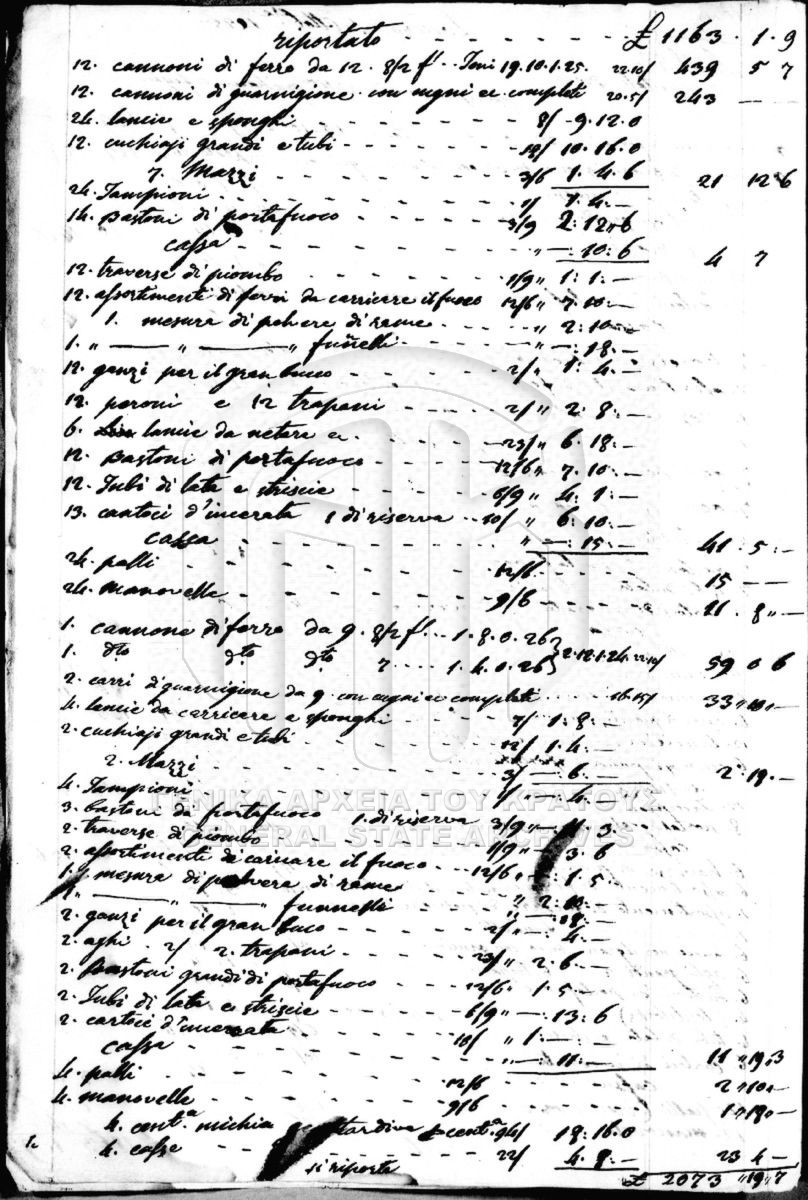 riportato - - - - - - - £ 1163 . 1 . 9
12. cannoni di ferro da 12. 8/2 f! .. Toni 19.10.1.25. 22.10/ 439 5 7
12. cannoni di guarnigione con cugni e completi 20.5/ 243 —
24. lancie e sponghi - - - - - - 8/ - 9.12.0
12. cuchiaji grandi e tubi - - - - - 18/ 10.16.0
7. Mazzi - - - - - - 3/6 1.4.6 21 12 6
24. Tampioni - - - - - - 1/ 1.4.—
14. Bastoni di portafuoco - - - - - 3/9 2:12"6
cassa - - - - - - " —:10:6 4 7
12. traverse di piombo - - - - - 1/9 " 1:1:—
12. assortimenti di ferri da carricare il fuoco 12/6 " 7.10:—
1. mesura di polvere di rame - - - " 2:10:—
1. " — " — " funelli - - - - " —:18.—
12. ganzi per il gran buco - - - - 2/" 1:4.—
12. peroni e 12 trapani - - - - 2/ " 2:8:—
6. lancie da netare - - - - 23/" 6.18:—
12. Bastoni di portafuoco - - - - 12/6" 7.10:—
12. Tubi di lata e striscie - - - - 6/9 " 4.1:—
13. cartoci d'incerata 1 di riserva - - 10/ " 6:10:—
cassa - - - - - - " —:15:— 41:5:—
24. palli - - - - - - 12/6 - - - - 15 — —
24. manovelle - - - - - - 9/6 - - - - 11.8"—
1. cannone di ferro da 9. 8/2 f! .. 1.8.0.26
1. dto dto dto 7 .... 1.4.0.26} 2.12.1.24. 22.10/ 59 0 6
2. carri di guarnigione da 9. con cugni e completi .... 16.15/ 33"10"—
4. lancie da carricare e sponghi - - - - 7/ 1:8:—
2. cuchiaji grandi e tubi - - - - 12/ 1.4.—
2. Mazzi - - - - - 3/ —:6:— 2"18.—
4. Tampioni - - - - - 1/ —:4.—
3. bastoni da portafuoco 1. di riserva 3/9 "—:11.3
2. traverse di piombo - - - - - 1/9 "—:3.6
2. assortimenti di caricare il fuoco - - - 12/6 " 1:5.—
1. mesura di polvere di rame - - - " 2:10:—
1" — " — " funnelli - - - - " —:18:—
2. ganzi per il gran buco - - - - 2/" —:4.—
2. aghi . 2/ 2. trapani - - - - 23/" 2.6.—
2. Bastoni grandi di portafuoco - - - 12/6" 1.5—
2. Tubi di lata e striscie - - - - 6/9 "—:13:6
2. cartoci d'incerata - - - - 10/ " 1:—:—
cassa - - - - - - "—:11:— 11"19"3
4. palli - - - - - - 12/6 - - - - 2"10"—
4. manovelle - - - - - 9/6 - - - - 1"18"—
4. cent.a michia centa. 94/ 18:16.0
4. casse - - - - 22/ 4.8:— 23 4 —
si riporta £ 2073 "19"7
ΓΕΝΙΚΑ ΑΡΧΕΙΑ ΤΟΥ ΚΡΑΤΟΥΣ
GENERAL STATE ARCHIVES